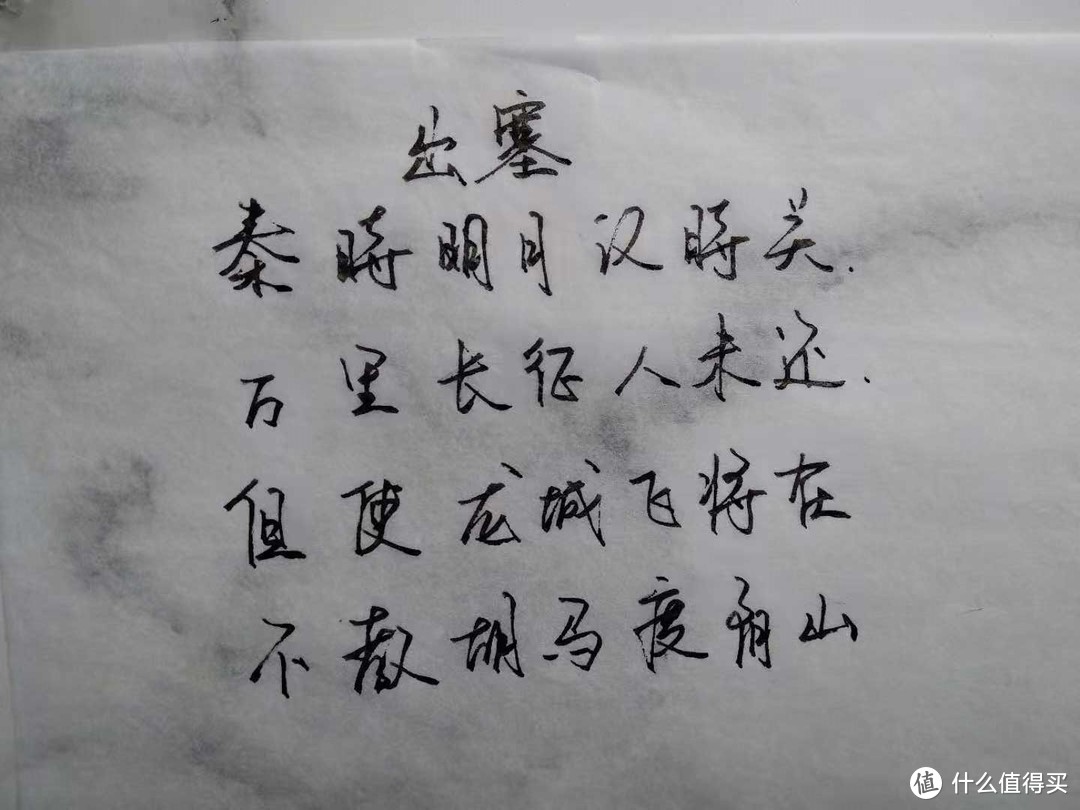 出塞
秦時明月汉時关.
万里长征人未还.
但使龙城飞将在
不教胡马度阴山
值 什么值得买